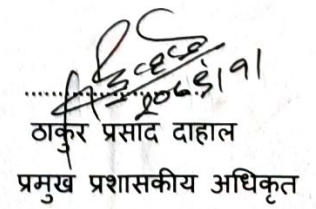 ठाकुर प्रसाद दाहाल
प्रमुख प्रशासकीय अधिकृत